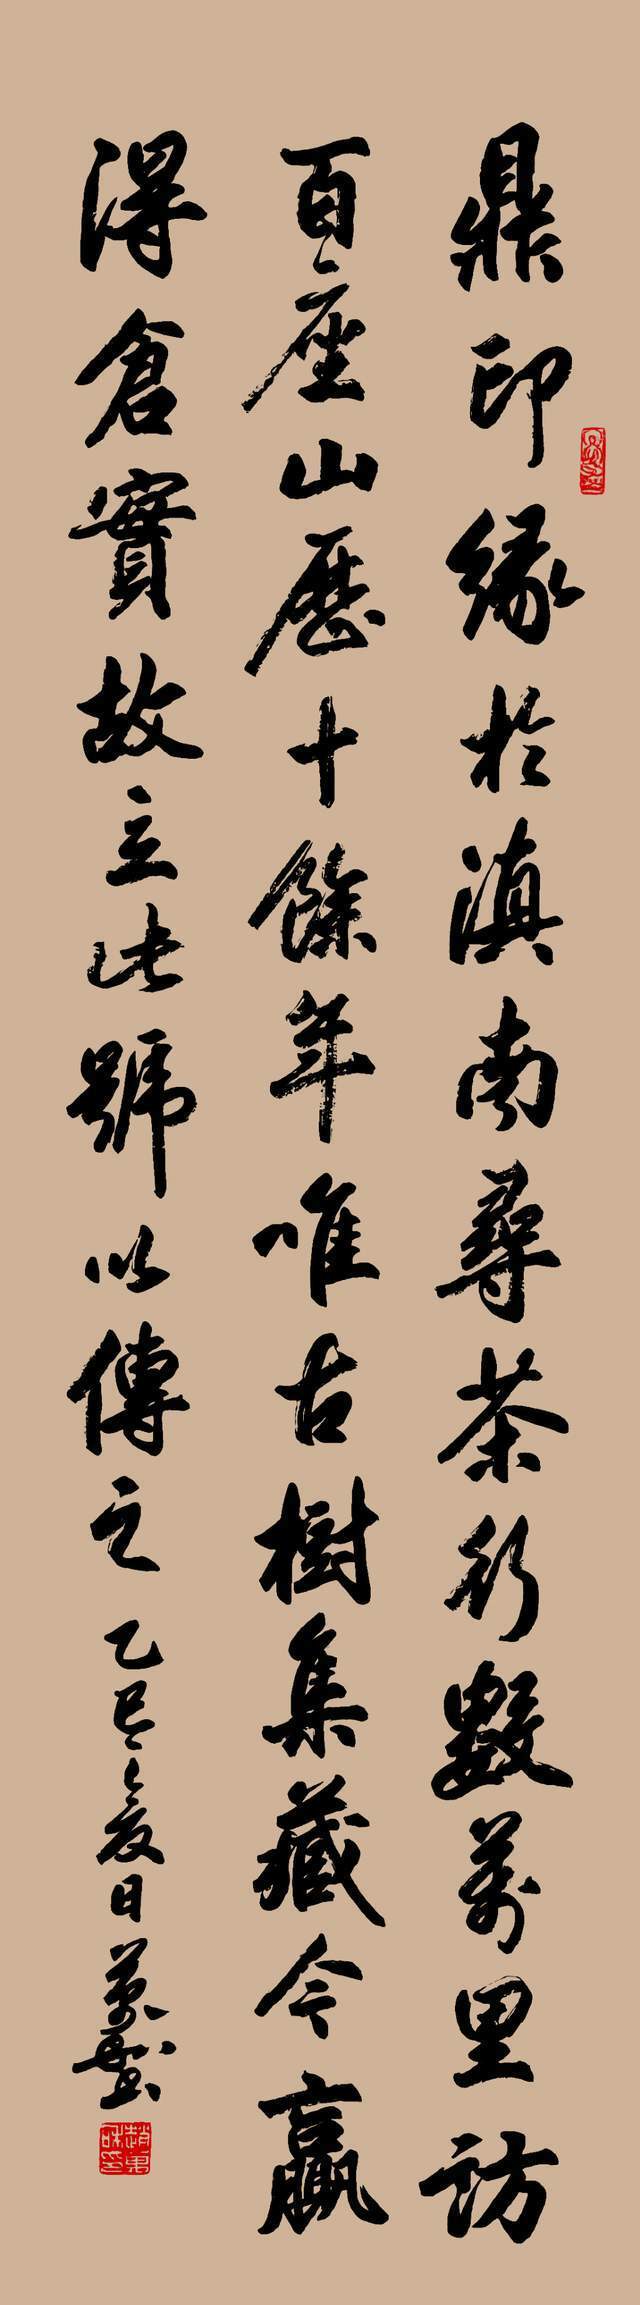 鼎印緣於滇南尋茶行數萬里訪
百座山歷十餘年唯古樹集藏今贏
得倉實故立此號以傳之
乙巳夏日